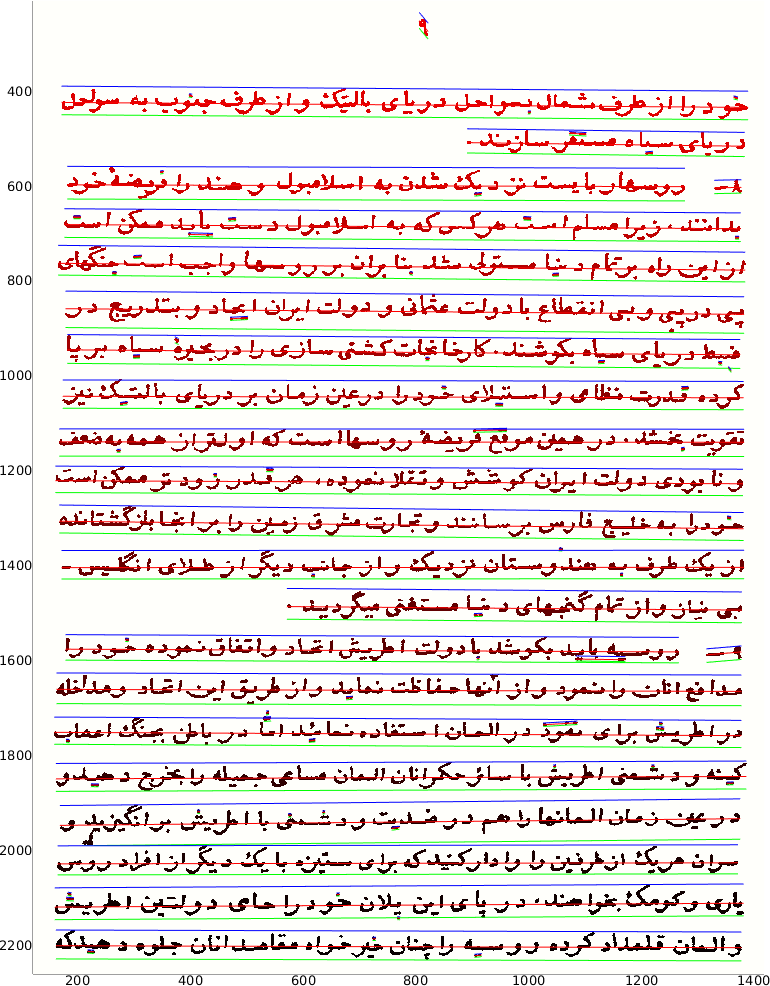 ۹
خود را از طرف شمال بسواحل دریای بالتیک و از طرف جنوب به سواحل
دریای سیاه مستقر سازند.
۸ـ روسها را بایست نزدیک شدن به اسلامبول و هند را فریضهٔ خود
بدانند، زیرا مسلم است هرکس که به اسلامبول دست یابد ممکن است
از این راه بر تمام دنیا مستولی شد بنابران بر روسها واجب است جنگهای
پی درپی و بی انقطاع با دولت عثمانی و دولت ایران ایجاد و بتدریج در
ضبط دریای سیاه بکوشند. کارخانجات کشتی سازی را در بحیرهٔ سیاه برپا
کرده قدرت نظامی و استیلای خود را در عین زمان بر دریای بالتیک نیز
تقویت بخشد. در همین موقع فریضهٔ روسها است که اولتر از همه به ضعف
و نابودی دولت ایران کوشش و تقلا نموده، هر قدر زودتر ممکن است
خود را به خلیج فارس برسانند و تجارت مشرق زمین را بر انجا بازگشتانده
از یک طرف به هندوستان نزدیک و از جانب دیگر از طلای انگلیس ـ
بی نیاز و از تمام گنجهای دنیا مستغنی میگردید.
۹ـ روسیه باید بکوشد با دولت اطریش اتحاد و اتفاق نموده خود را
مدافع انان وانمود و از آنها حفاظت نماید و از طریق این اتحاد و مداخله
در اطریش برای نفوذ در المان استفاده نمائید اما در باطن بجنگ اعصاب
کینه و دشمنی اطریش با سائر حکمرانان المان مساعی جمیله را بخرج دهید و
در عین زمان المانها را هم در ضدیت و دشمنی با اطریش برانگیزید و
سران هریک از طرفین را وادار کنید که برای ستیزه با یک دیگر از افراد روس
یاری و کومک بخواهند. در پای این پلان خود را حامی دولتین اطریش
و المان قلمداد کرده و روسیه را چنان خیر خواه مقاصد انان جلوه دهید که